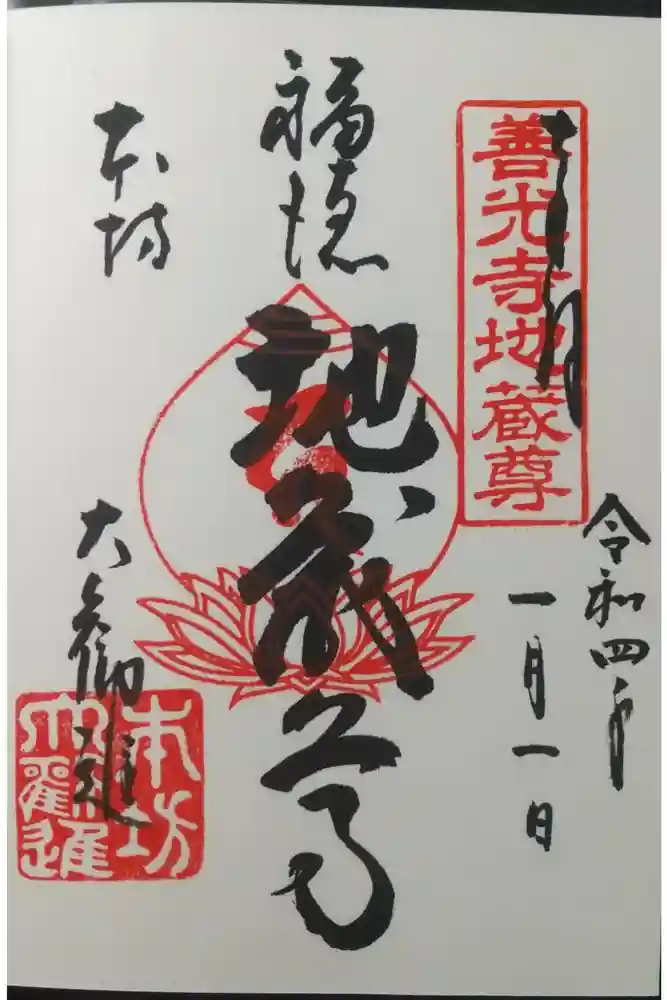 令和四年
一月一日
善光寺地蔵尊
福徳
地蔵尊
本坊
大勧進
本坊
大勸進